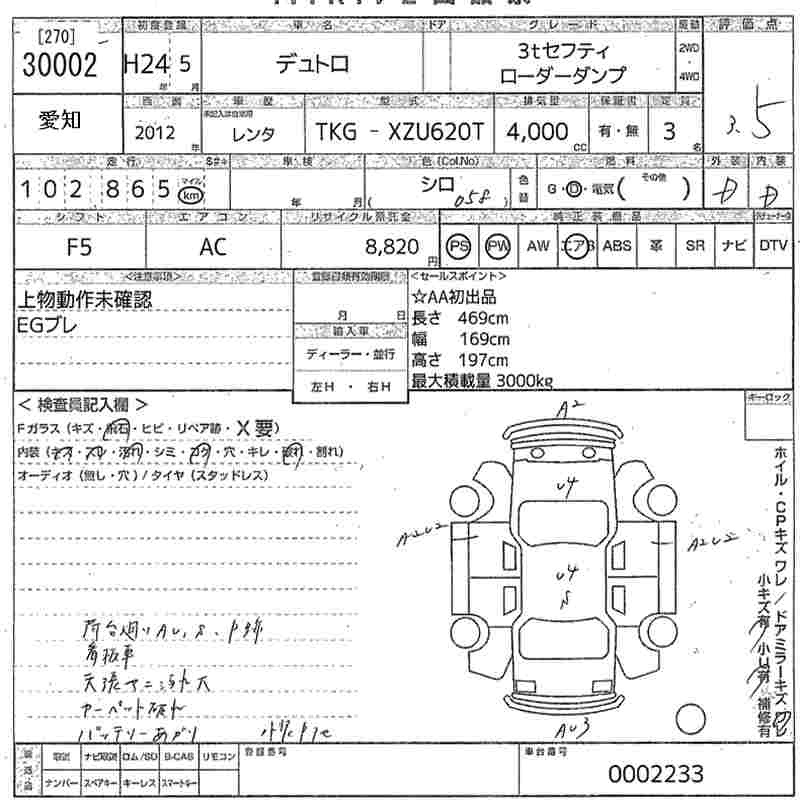 初度登録 車名 ドア グレード 駆動 評価点
[270]
30002 H24 5 デュトロ 3tセフティ
ローダーダンプ
年 月 2WD・4WD
3.5
西暦 車歴 型式 排気量 保証書 定員
愛知 2012年 レンタ TKG - XZU620T 4,000cc 有・無 3名
走行 車検 色(Col.No) 燃料 外装 内装
102865 マイル km 年 月 シロ (058) 色替 G・D・電気( その他 ) D D
シフト エアコン リサイクル預託金 純正装備品
F5 AC 8,820円 PS PW AW エアB ABS 革 SR ナビ DTV
<注意事項> 登録書類有効期限 <セールスポイント>
上物動作未確認
EGブレ
月 日
輸入車
ディーラー・並行
左H ・ 右H
☆AA初出品
長さ 469cm
幅 169cm
高さ 197cm
最大積載量 3000kg
キーロック
< 検査員記入欄 >
Fガラス (キズ・飛石・ヒビ・リペア跡・X要)
内装 (ネオ・スレ・汚れ・シミ・コゲ・穴・キレ・破れ・割れ)
オーディオ (無し・穴) / タイヤ (スタッドレス)
A2
U4
A2U2
A2U2
U4
S
AU3
ホイル・CPキズ ワレ / ドアミラーキズ ワレ
小キズ有 / 小U有 / 補修有
荷台廻りAU、S、P跡
看板車
天張ヤニ汚れ大
カーペット破れ
バッテリーあがり
取説 ナビ取説 ロム/SD B-CAS リモコン 登録番号 車台番号
ナンバー スペアキー キーレス スマートキー
0002233